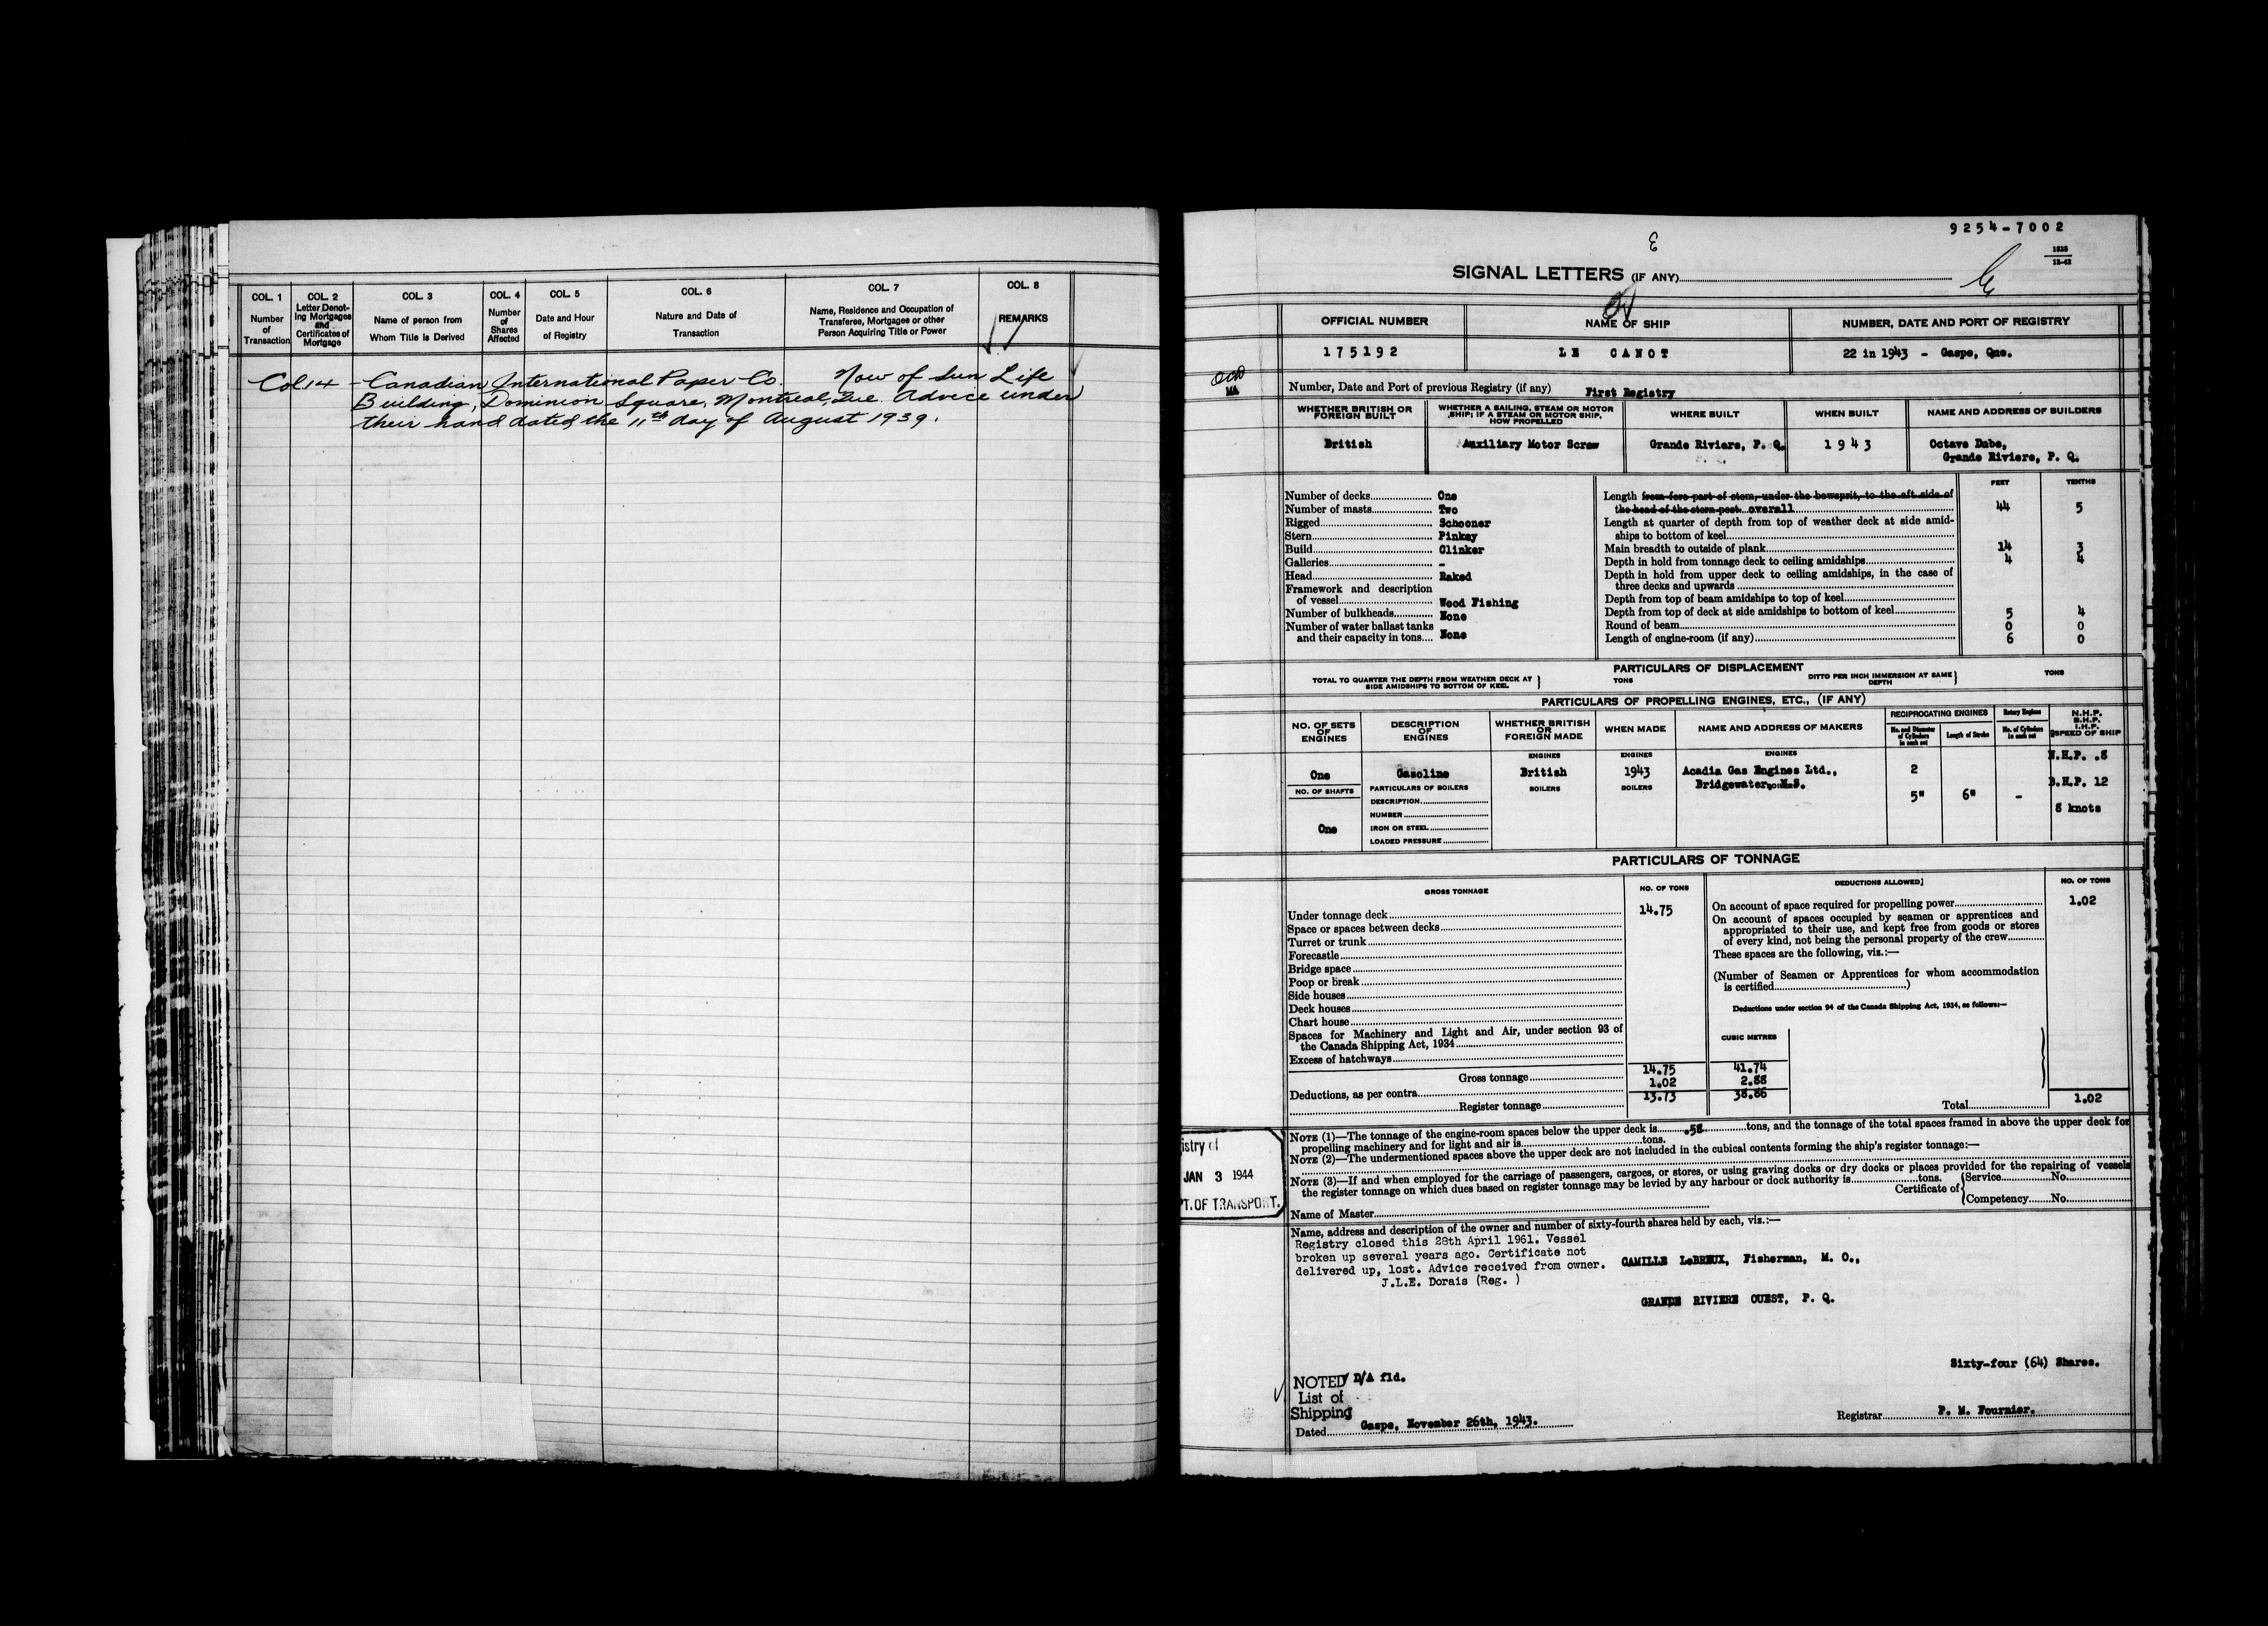 COL. 1 COL. 2 COL. 3 COL. 4 COL. 5 COL. 6 COL. 7 COL. 8
Number of Transaction
Letter Denoting Mortgages and Certificates of Mortgage
Name of person from Whom Title is Derived
Number of Shares Affected
Date and Hour of Registry
Nature and Date of Transaction
Name, Residence and Occupation of Transferee, Mortgagee or other Person Acquiring Title or Power
REMARKS
Col 14 - Canadian International Paper Co. Now of Sun Life
Building, Dominion Square, Montreal, Que. Advice under
their hand dated the 11th day of August 1939.
9254-7002
1535
12-42
SIGNAL LETTERS (IF ANY)
OFFICIAL NUMBER NAME OF SHIP NUMBER, DATE AND PORT OF REGISTRY
175192 LE CANOT 22 in 1943 - Gaspe, Que.
Number, Date and Port of previous Registry (if any) First Registry
MA
WHETHER BRITISH OR FOREIGN BUILT
WHETHER A SAILING, STEAM OR MOTOR SHIP; IF A STEAM OR MOTOR SHIP, HOW PROPELLED
WHERE BUILT WHEN BUILT NAME AND ADDRESS OF BUILDERS
British Auxiliary Motor Screw Grande Riviere, P. Q. 1943 Octave Dube,
Grande Riviere, P. Q.
FEET TENTHS
Number of decks One
Number of masts Two
Rigged Schooner
Stern Pinkey
Build Clinker
Galleries -
Head Raked
Framework and description
of vessel Wood Fishing
Number of bulkheads None
Number of water ballast tanks
and their capacity in tons None
Length from fore part of stem, under the bowsprit, to the aft side of
the head of the stern post overall 44 5
Length at quarter of depth from top of weather deck at side amid-
ships to bottom of keel
Main breadth to outside of plank 14 3
Depth in hold from tonnage deck to ceiling amidships 4 4
Depth in hold from upper deck to ceiling amidships, in the case of
three decks and upwards
Depth from top of beam amidships to top of keel
Depth from top of deck at side amidships to bottom of keel 5 4
Round of beam 0 0
Length of engine-room (if any) 6 0
PARTICULARS OF DISPLACEMENT
TOTAL TO QUARTER THE DEPTH FROM WEATHER DECK AT SIDE AMIDSHIPS TO BOTTOM OF KEEL } TONS
DITTO PER INCH IMMERSION AT SAME DEPTH } TONS
PARTICULARS OF PROPELLING ENGINES, ETC., (IF ANY)
NO. OF SETS OF ENGINES
DESCRIPTION OF ENGINES
WHETHER BRITISH OR FOREIGN MADE
WHEN MADE
NAME AND ADDRESS OF MAKERS
RECIPROCATING ENGINES
No. and Diameter of Cylinders in each set
Length of Stroke
Rotary Engines
No. of Cylinders in each set
N.H.P.
B.H.P.
I.H.P.
SPEED OF SHIP
ENGINES ENGINES ENGINES
N.H.P. .8
One Gasoline British 1943 Acadia Gas Engines Ltd., 2
Bridgewater, N.S.
B.H.P. 12
NO. OF SHAFTS PARTICULARS OF BOILERS BOILERS BOILERS
DESCRIPTION 5" 6" -
NUMBER
8 knots
One IRON OR STEEL
LOADED PRESSURE
PARTICULARS OF TONNAGE
GROSS TONNAGE NO. OF TONS DEDUCTIONS ALLOWED NO. OF TONS
Under tonnage deck 14.75
Space or spaces between decks
Turret or trunk
Forecastle
Bridge space
Poop or break
Side houses
Deck houses
Chart house
Spaces for Machinery and Light and Air, under section 93 of
the Canada Shipping Act, 1934
Excess of hatchways
On account of space required for propelling power 1.02
On account of spaces occupied by seamen or apprentices and
appropriated to their use, and kept free from goods or stores
of every kind, not being the personal property of the crew
These spaces are the following, viz.:—
(Number of Seamen or Apprentices for whom accommodation
is certified )
Deductions under section 94 of the Canada Shipping Act, 1934, as follows:—
CUBIC METRES
Gross tonnage 14.75 41.74
Deductions, as per contra 1.02 2.88
Register tonnage 13.73 38.86
Total 1.02
NOTE (1)—The tonnage of the engine-room spaces below the upper deck is .58 tons, and the tonnage of the total spaces framed in above the upper deck for
propelling machinery and for light and air is tons.
NOTE (2)—The undermentioned spaces above the upper deck are not included in the cubical contents forming the ship's register tonnage:—
NOTE (3)—If and when employed for the carriage of passengers, cargoes, or stores, or using graving docks or dry docks or places provided for the repairing of vessels
the register tonnage on which dues based on register tonnage may be levied by any harbour or dock authority is tons.
Certificate of { Service No.
Competency No.
Name of Master
istry of
JAN 3 1944
PT. OF TRANSPORT.
Name, address and description of the owner and number of sixty-fourth shares held by each, viz.:—
Registry closed this 28th April 1961. Vessel
broken up several years ago. Certificate not
delivered up, lost. Advice received from owner.
J.L.E. Dorais (Reg. )
CAMILLE LeBREUX, Fisherman, M. O.,
GRANDE RIVIERE OUEST, P. Q.
Sixty-four (64) Shares.
NOTED D/A fld.
List of
Shipping
Dated Gaspe, November 26th, 1943.
Registrar P. M. Fournier.